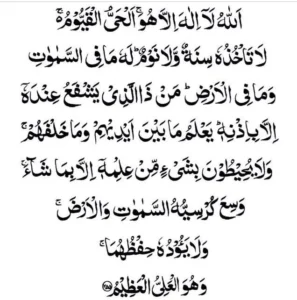 اَللّٰهُ لَاۤ اِلٰهَ اِلَّا هُوَۚ اَلْحَیُّ الْقَیُّوْمُ ەۚ
لَا تَاْخُذُهٗ سِنَةٌ وَّلَا نَوْمٌؕ لَهٗ مَا فِی السَّمٰوٰتِ
وَمَا فِی الْاَرْضِؕ مَنْ ذَا الَّذِیْ یَشْفَعُ عِنْدَهٗۤ
اِلَّا بِاِذْنِهٖؕ یَعْلَمُ مَا بَیْنَ اَیْدِیْهِمْ وَمَا خَلْفَهُمْۚ
وَلَا یُحِیْطُوْنَ بِشَیْءٍ مِّنْ عِلْمِهٖۤ اِلَّا بِمَا شَآءَۚ
وَسِعَ كُرْسِیُّهُ السَّمٰوٰتِ وَالْاَرْضَۚ
وَلَا یَـُٔوْدُهٗ حِفْظُهُمَاۚ
وَهُوَ الْعَلِیُّ الْعَظِیْمُ ۝۲۵۵